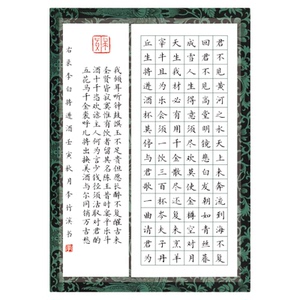 君不见黄河之水天上来奔流到海不复
回君不见高堂明镜悲白发朝如青丝暮
成雪人生得意须尽欢莫使金樽空对月
天生我材必有用千金散尽还复来烹羊
宰牛且为乐会须一饮三百杯岑夫子丹
丘生将进酒杯莫停与君歌一曲请君为
我倾耳听钟鼓馔玉不足贵但愿长醉不复醒古来
圣贤皆寂寞惟有饮者留其名陈王昔时宴平乐斗
酒十千恣欢谑主人何为言少钱径须沽取对君酌
五花马千金裘呼儿将出换美酒与尔同销万古愁
右录李白将进酒壬寅秋月李溪书